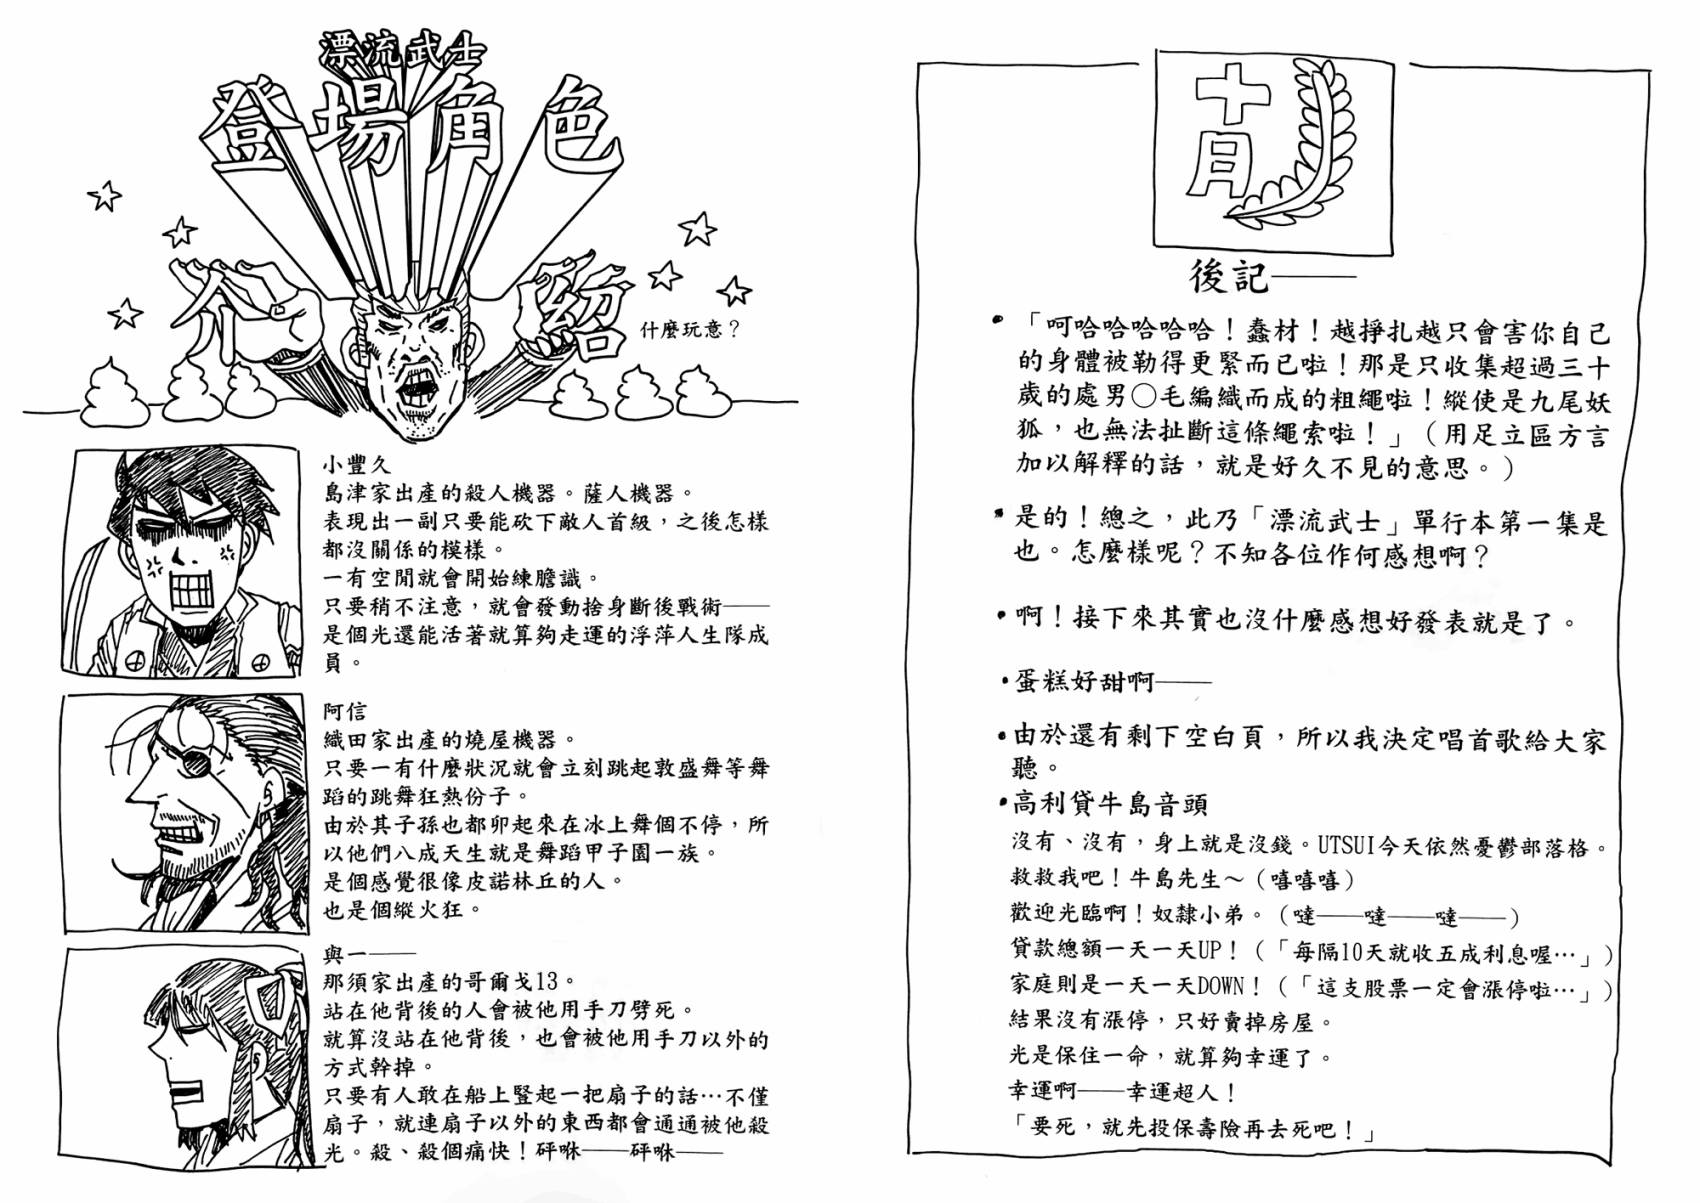 漂流武士
登場角色
介紹
什麼玩意？
小豐久
島津家出產的殺人機器。薩人機器。
表現出一副只要能砍下敵人首級，之後怎樣
都沒關係的模樣。
一有空閒就會開始練膽識。
只要稍不注意，就會發動捨身斷後戰術——
是個光還能活著就算夠走運的浮萍人生隊成
員。
阿信
織田家出產的燒屋機器。
只要一有什麼狀況就會立刻跳起敦盛舞等舞
蹈的跳舞狂熱份子。
由於其子孫也都卯起來在冰上舞個不停，所
以他們八成天生就是舞蹈甲子園一族。
是個感覺很像皮諾林丘的人。
也是個縱火狂。
與一——
那須家出產的哥爾戈13。
站在他背後的人會被他用手刀劈死。
就算沒站在他背後，也會被他用手刀以外的
方式幹掉。
只要有人敢在船上豎起一把扇子的話…不僅
扇子，就連扇子以外的東西都會通通被他殺
光。殺、殺個痛快！砰咻——砰咻——
十月
後記——
•「呵哈哈哈哈哈！蠢材！越掙扎越只會害你自己
的身體被勒得更緊而已啦！那是只收集超過三十
歲的處男○毛編織而成的粗繩啦！縱使是九尾妖
狐，也無法扯斷這條繩索啦！」（用足立區方言
加以解釋的話，就是好久不見的意思。）
•是的！總之，此乃「漂流武士」單行本第一集是
也。怎麼樣呢？不知各位作何感想啊？
•啊！接下來其實也沒什麼感想好發表就是了。
•蛋糕好甜啊——
•由於還有剩下空白頁，所以我決定唱首歌給大家
聽。
•高利貸牛島音頭
沒有、沒有，身上就是沒錢。UTSUI今天依然憂鬱部落格。
救救我吧！牛島先生～（嘻嘻嘻）
歡迎光臨啊！奴隸小弟。（噠——噠——噠——）
貸款總額一天一天UP！（「每隔10天就收五成利息喔…」）
家庭則是一天一天DOWN！（「這支股票一定會漲停啦…」）
結果沒有漲停，只好賣掉房屋。
光是保住一命，就算夠幸運了。
幸運啊——幸運超人！
「要死，就先投保壽險再去死吧！」